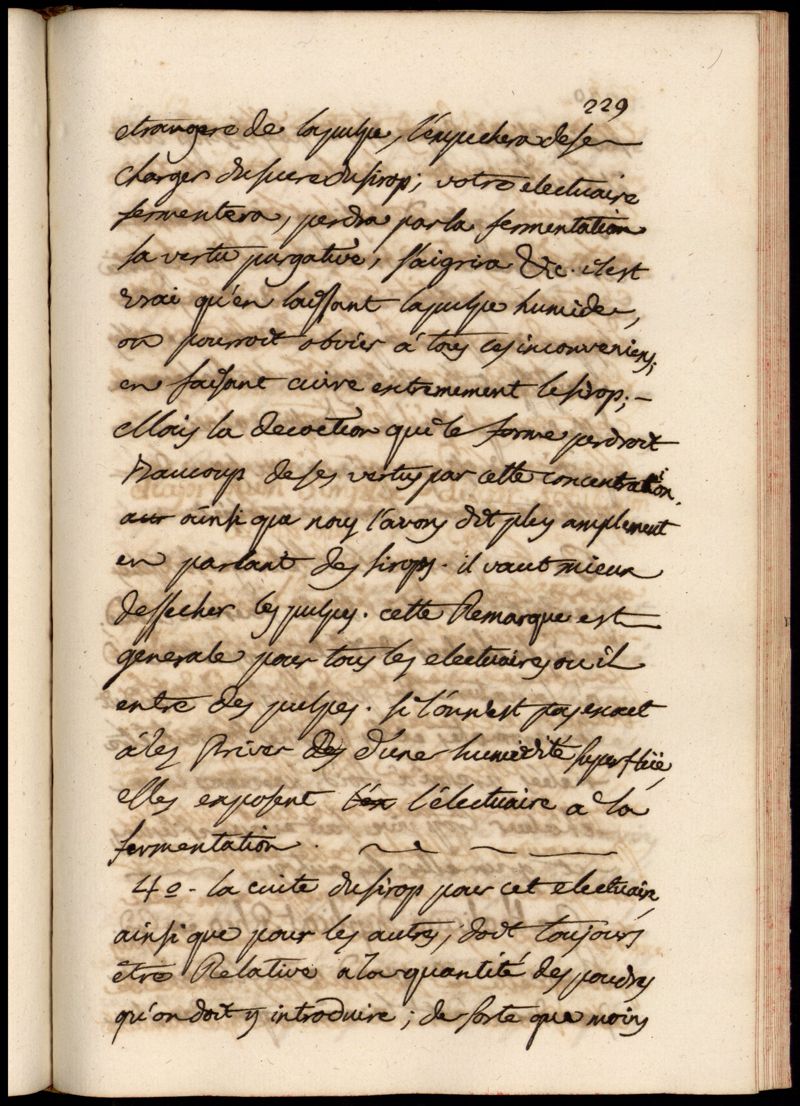 229
etrangere de la pulpe, l'empechera de se
charger du sucre du sirop; votre electuaire
fermentera, perdra par la fermentation
sa vertu purgative, s'aigrira &c. il est
vrai qu'en laissant la pulpe humide,
on pourroit obvier à tous ces inconveniens,
en faisant cuire extremement le sirop; -
Mais la decoction qui le forme perdroit
Beaucoup de ses vertus par cette concentration,
ainsi que nous l'avons dit plus amplement
en parlant des sirops. il vaut mieux
dessecher les pulpes. cette Remarque est
generale pour tous les electuaires ou il
entre des pulpes. si l'on n'est pas exact
à les priver des d'une humidité superflüe,
elles exposent l'en l'électuaire à la
fermentation.
4o - la cuite du sirop pour cet electuaire,
ainsi que pour les autres, doit toujours
être Relative à la quantité des poudres
qu'on doit y introduire; de sorte que moins